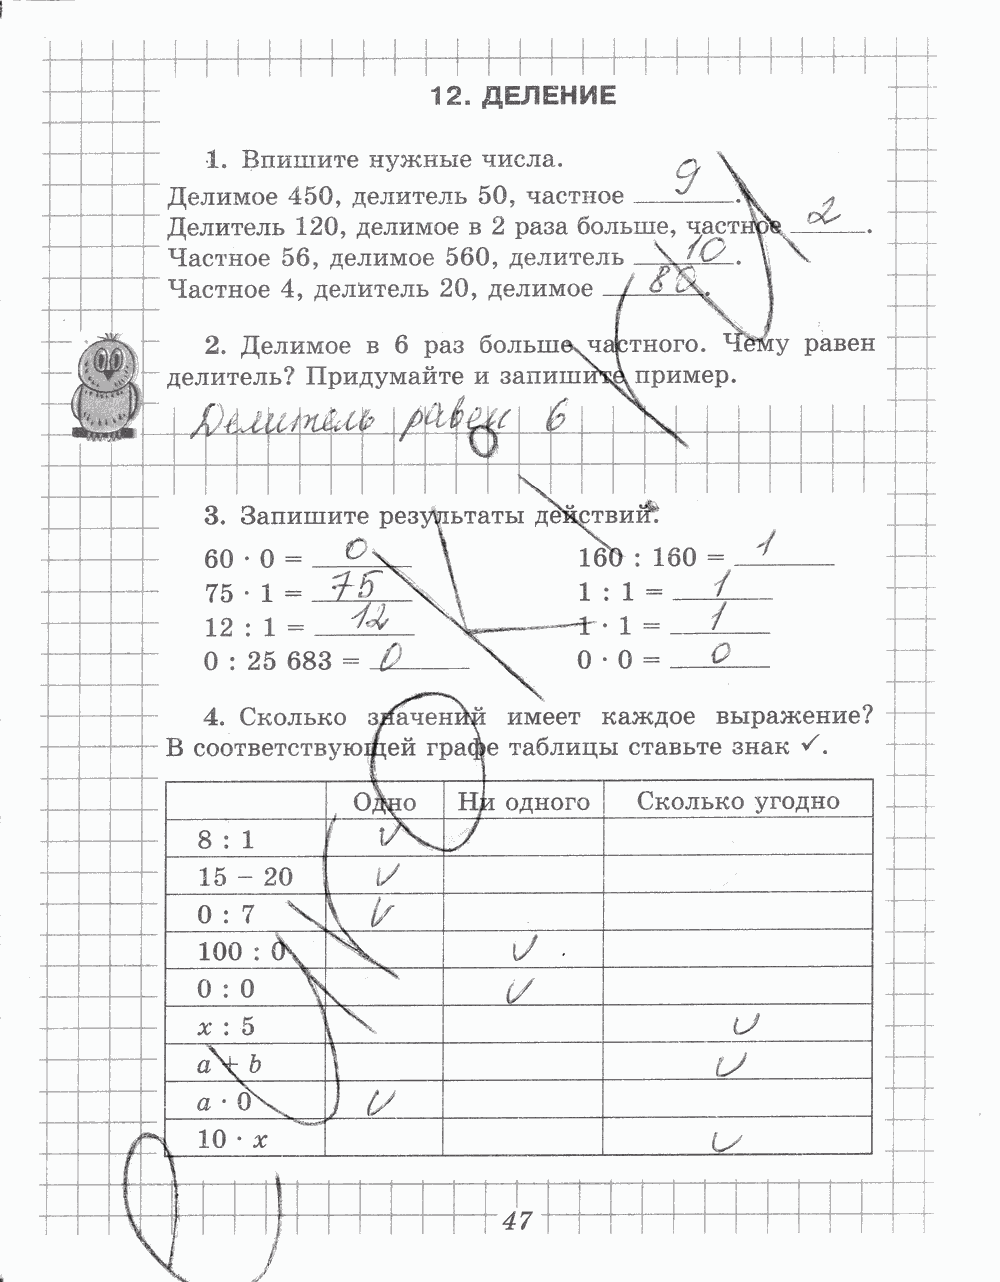 12. ДЕЛЕНИЕ
1. Впишите нужные числа.
Делимое 450, делитель 50, частное 9.
Делитель 120, делимое в 2 раза больше, частное 2.
Частное 56, делимое 560, делитель 10.
Частное 4, делитель 20, делимое 80.
2. Делимое в 6 раз больше частного. Чему равен
делитель? Придумайте и запишите пример.
Делитель равен 6
3. Запишите результаты действий.
60 · 0 = 0 160 : 160 = 1
75 · 1 = 75 1 : 1 = 1
12 : 1 = 12 1 · 1 = 1
0 : 25 683 = 0 0 · 0 = 0
4. Сколько значений имеет каждое выражение?
В соответствующей графе таблицы ставьте знак ✓.
Одно Ни одного Сколько угодно
8 : 1 ✓
15 − 20 ✓
0 : 7 ✓
100 : 0 ✓
0 : 0 ✓
x : 5 ✓
a + b ✓
a · 0 ✓
10 · x ✓
47